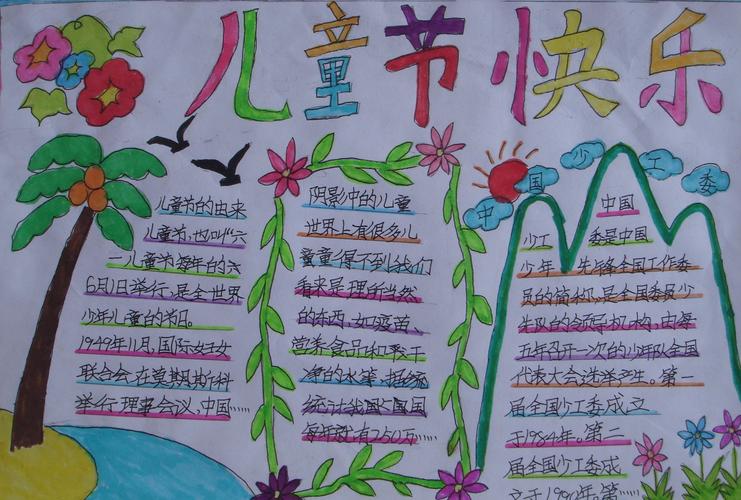 儿童节快乐
儿童节的由来
儿童节,也叫“六
一儿童节每年的六
6月1日举行,是全世界
少年儿童的节日。
1949年11月,国际妇女
联合会在莫斯科
举行理事会议,中国……
阴影中的儿童
世界上有很多儿
童得不到我们
看来是理所当然
的东西,如疫苗、
营养食品和干
净的水等,据
统计我国
每年就有250万……
中国少工委
中国
少工委是中国
少年先锋全国工作委
员的简称,是全国委员少
年队的领导机构,由每
五年召开一次的少年队全国
代表大会选举产生。第一
届全国少工委成立
于1984年。第二
届全国少工委成
立于1990年,第……